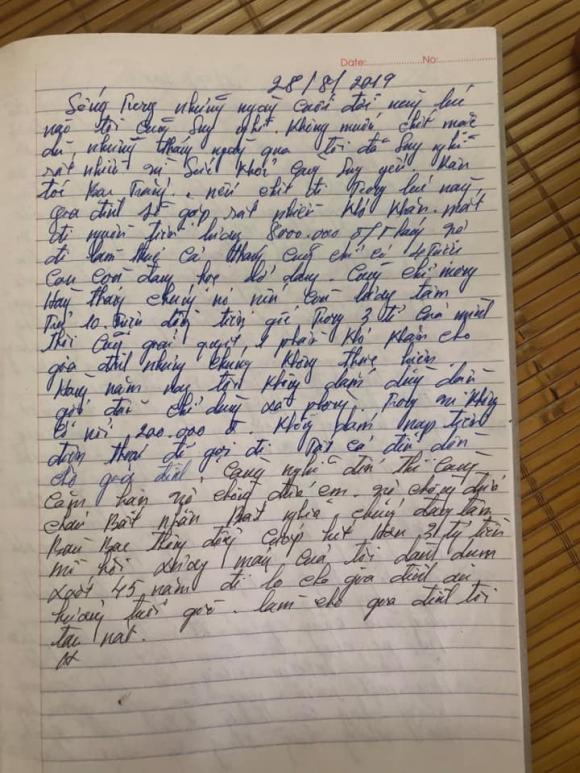 Date: No:
28/8/2019
Sống Trong những ngày cuối đời này lúc
nào tôi cũng suy nghĩ. Không muốn chết mặc
dù những tháng ngày qua tôi đã suy nghĩ
rất nhiều vì sức khỏe càng suy yếu
nếu chết đi trong lúc này
gia đình sẽ gặp rất nhiều khó khăn. mất
đi nguồn tiền lương 8000.000 đ/tháng
đi làm thuê cả tháng cũng chỉ có 4 triệu
con còn đang học dở dang. Cũng chỉ mong
hàng tháng chúng nó còn lương tâm
Trả 10. triệu đồng tiền gốc trong 3 tỉ của mình
thì cũng giải quyết 1 phần khó khăn cho
gia đình nhưng chúng không thực hiện
Hàng năm nay tôi không dám dùng dầu
gội đầu chỉ dùng xà phòng. Trong ví không
có nổi 200.000 đ. Không dám nạp tiền
điện thoại để gọi đi. Tất cả dồn
cho gia đình. Càng nghĩ đến thì càng
căm hận vợ chồng đứa em. vợ chồng đứa
cháu Bất nhân Bất nghĩa, chúng đang tâm
cướp hết hơn 3 tỷ tiền
mồ hôi xương máu của tôi dành dụm
suốt 45 năm để lo cho gia đình
hưởng tuổi già. làm cho gia đình tôi
tan nát.